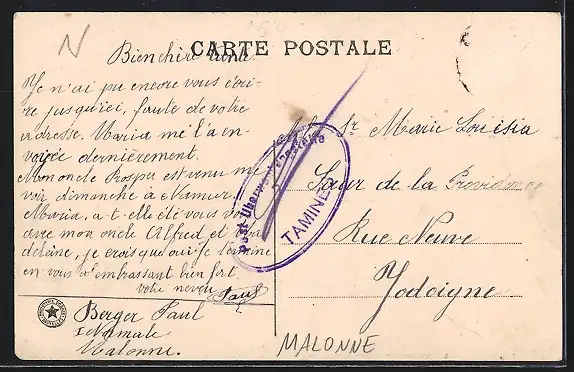 N
CARTE POSTALE
Bien chère tante
Je n'ai pu encore vous écri-
re jusqu'ici, faute de votre
adresse. Maria me l'a en-
voyée dernièrement.
Mon oncle Rospu est venu me
voir dimanche à Namur.
Maria, a-t-elle été vous voir
avec mon oncle Alfred et
je crois que oui. Je termine
en vous embrassant bien fort
votre neveu Paul
Berger Paul
1e Normale
Malonne.
Sr Marie Louisia
Sœur de la Providence
Rue Neuve
Jodoigne
Post-Überwachungsstelle
TAMINES
MALONNE